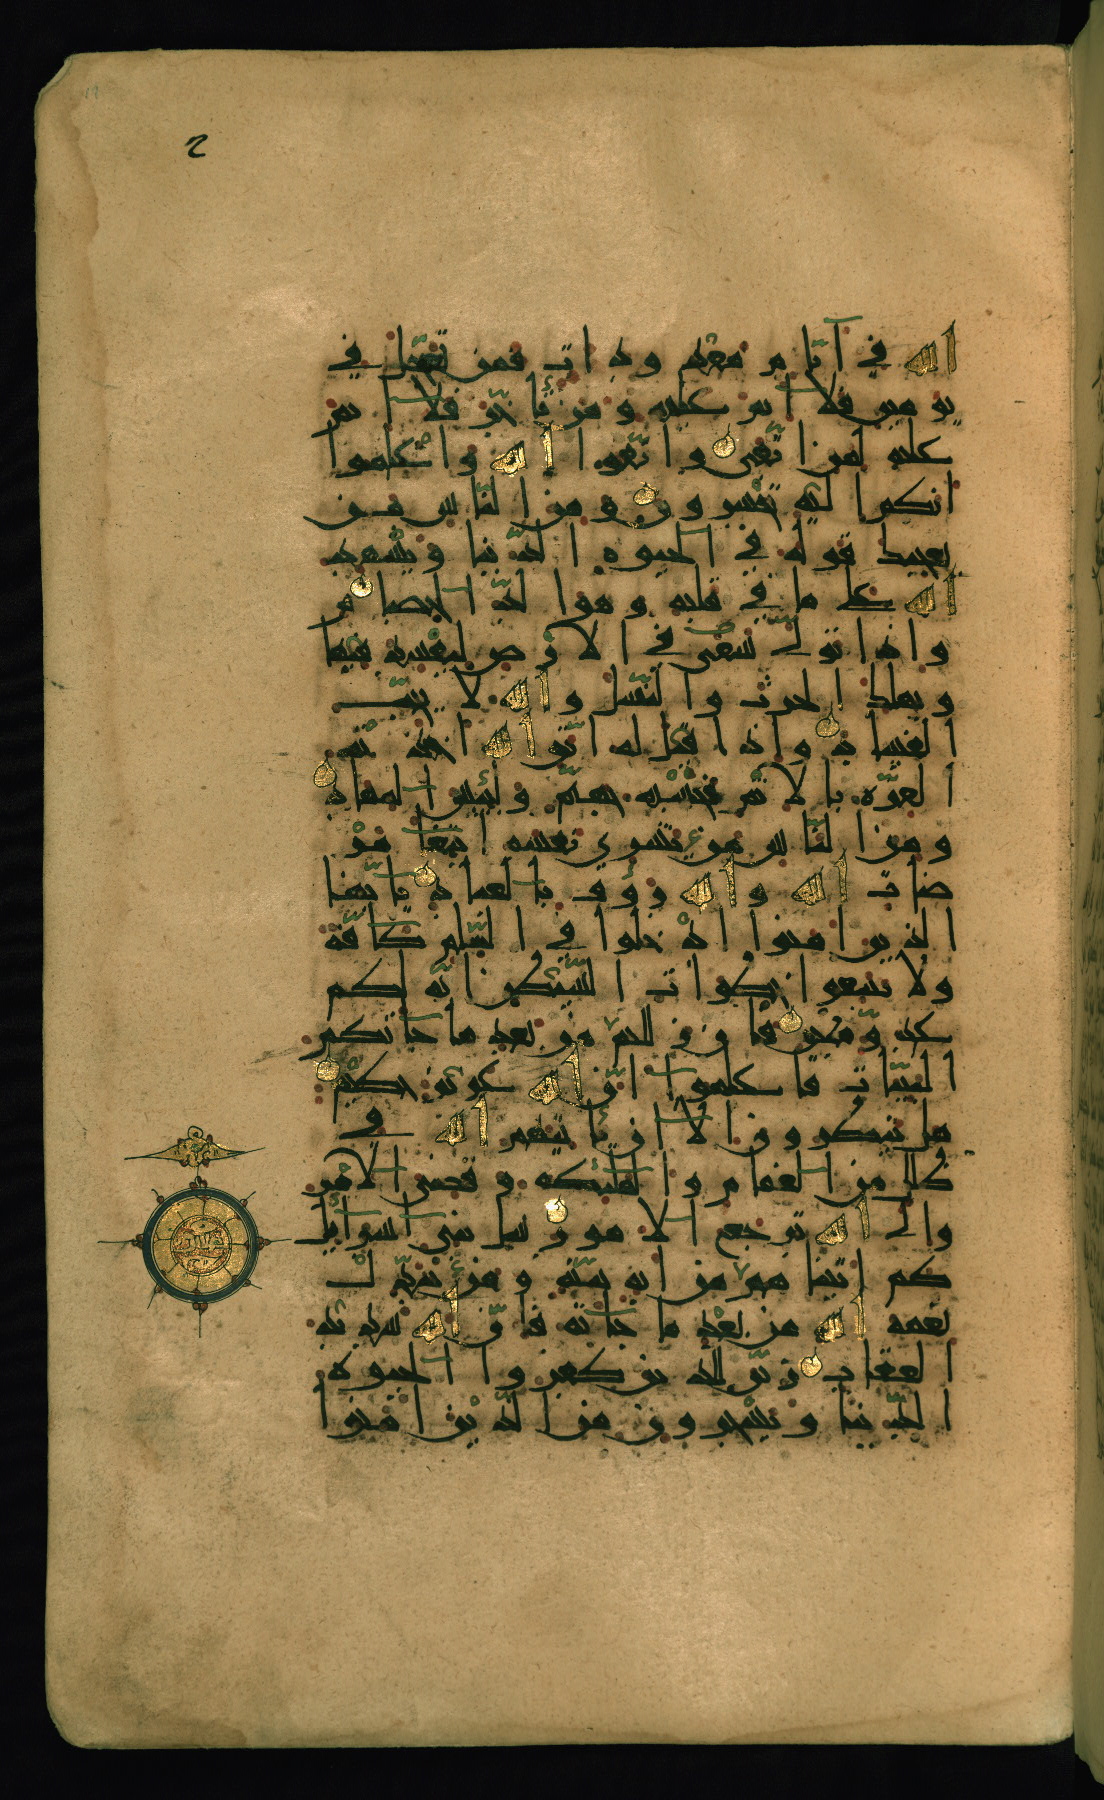 2
الله في أيام معدودات فمن تعجل في
يومين فلا إثم عليه ومن تأخر فلا إثم
عليه لمن اتقى واتقوا الله واعلموا
أنكم إليه تحشرون ومن الناس من
يعجبك قوله في الحيوة الدنيا ويشهد
الله على ما في قلبه وهو ألد الخصام
وإذا تولى سعى في الأرض ليفسد فيها
ويهلك الحرث والنسل والله لا يحب
الفساد وإذا قيل له اتق الله أخذته
العزة بالإثم فحسبه جهنم ولبئس المهاد
ومن الناس من يشري نفسه ابتغاء مر
ضات الله والله رؤف بالعباد يا أيها
الذين آمنوا ادخلوا في السلم كافة
ولا تتبعوا خطوات الشيطن إنه لكم
عدو مبين فإن زللتم من بعد ما جاءتكم
البينات فاعلموا أن الله عزيز حكيم
هل ينظرون إلا أن يأتيهم الله في
ظلل من الغمام والملئكة وقضي الأمر
وإلى الله ترجع الأمور سل بني إسرائيل
كم آتيناهم من آية بينة ومن يبدل
نعمة الله من بعد ما جاءته فإن الله شديد
العقاب زين للذين كفروا الحيوة
الدنيا ويسخرون من الذين آمنوا